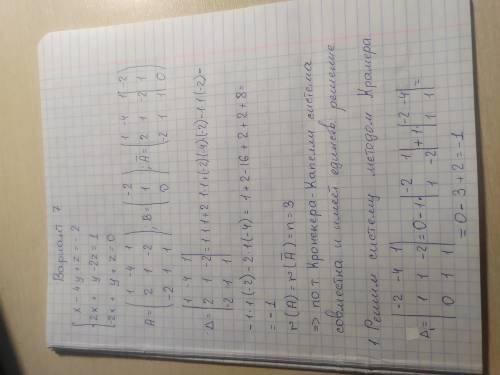 Вариант 7
{ x - 4y + z = -2
{ 2x + y - 2z = 1
{ -2x + y + z = 0
A = (1 -4 1; 2 1 -2; -2 1 1), B = (-2; 1; 0), Ā = (1 -4 1 | -2; 2 1 -2 | 1; -2 1 1 | 0)
Δ = |1 -4 1; 2 1 -2; -2 1 1| = 1·1·1+2·1·1+(-2)(-4)(-2)-1·1(-2)-
-1·1(-2)-2·1(-4) = 1+2-16+2+2+8=
= -1
r(A) = r(Ā) = n = 3
=> по т. Кронекера-Капелли система
совместна и имеет единств. решение
1. Решим систему методом Крамера
Δ₁ = |-2 -4 1; 1 1 -2; 0 1 1| = 0-1·|-2 1; 1 -2| + 1|-2 -4; 1 1| =
= 0 - 3 + 2 = -1